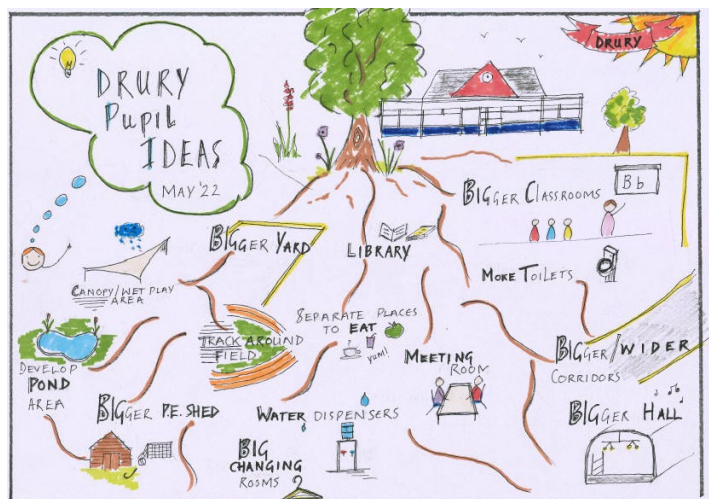 DRURY
DRURY
PUPIL
IDEAS
MAY '22
BIGGER CLASSROOMS
Bb
BIGGER YARD
LIBRARY
MORE TOILETS
CANOPY/WET PLAY
AREA
SEPARATE PLACES
TO EAT
yum!
TRACK AROUND
FIELD
MEETING
ROOM
BIGGER/WIDER
CORRIDORS
DEVELOP
POND
AREA
BIGGER P.E. SHED
WATER DISPENSERS
BIGGER HALL
BIG
CHANGING
ROOMS